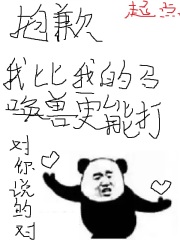 抱歉
起点
我比比我的马
唤兽更能打
对你说的对